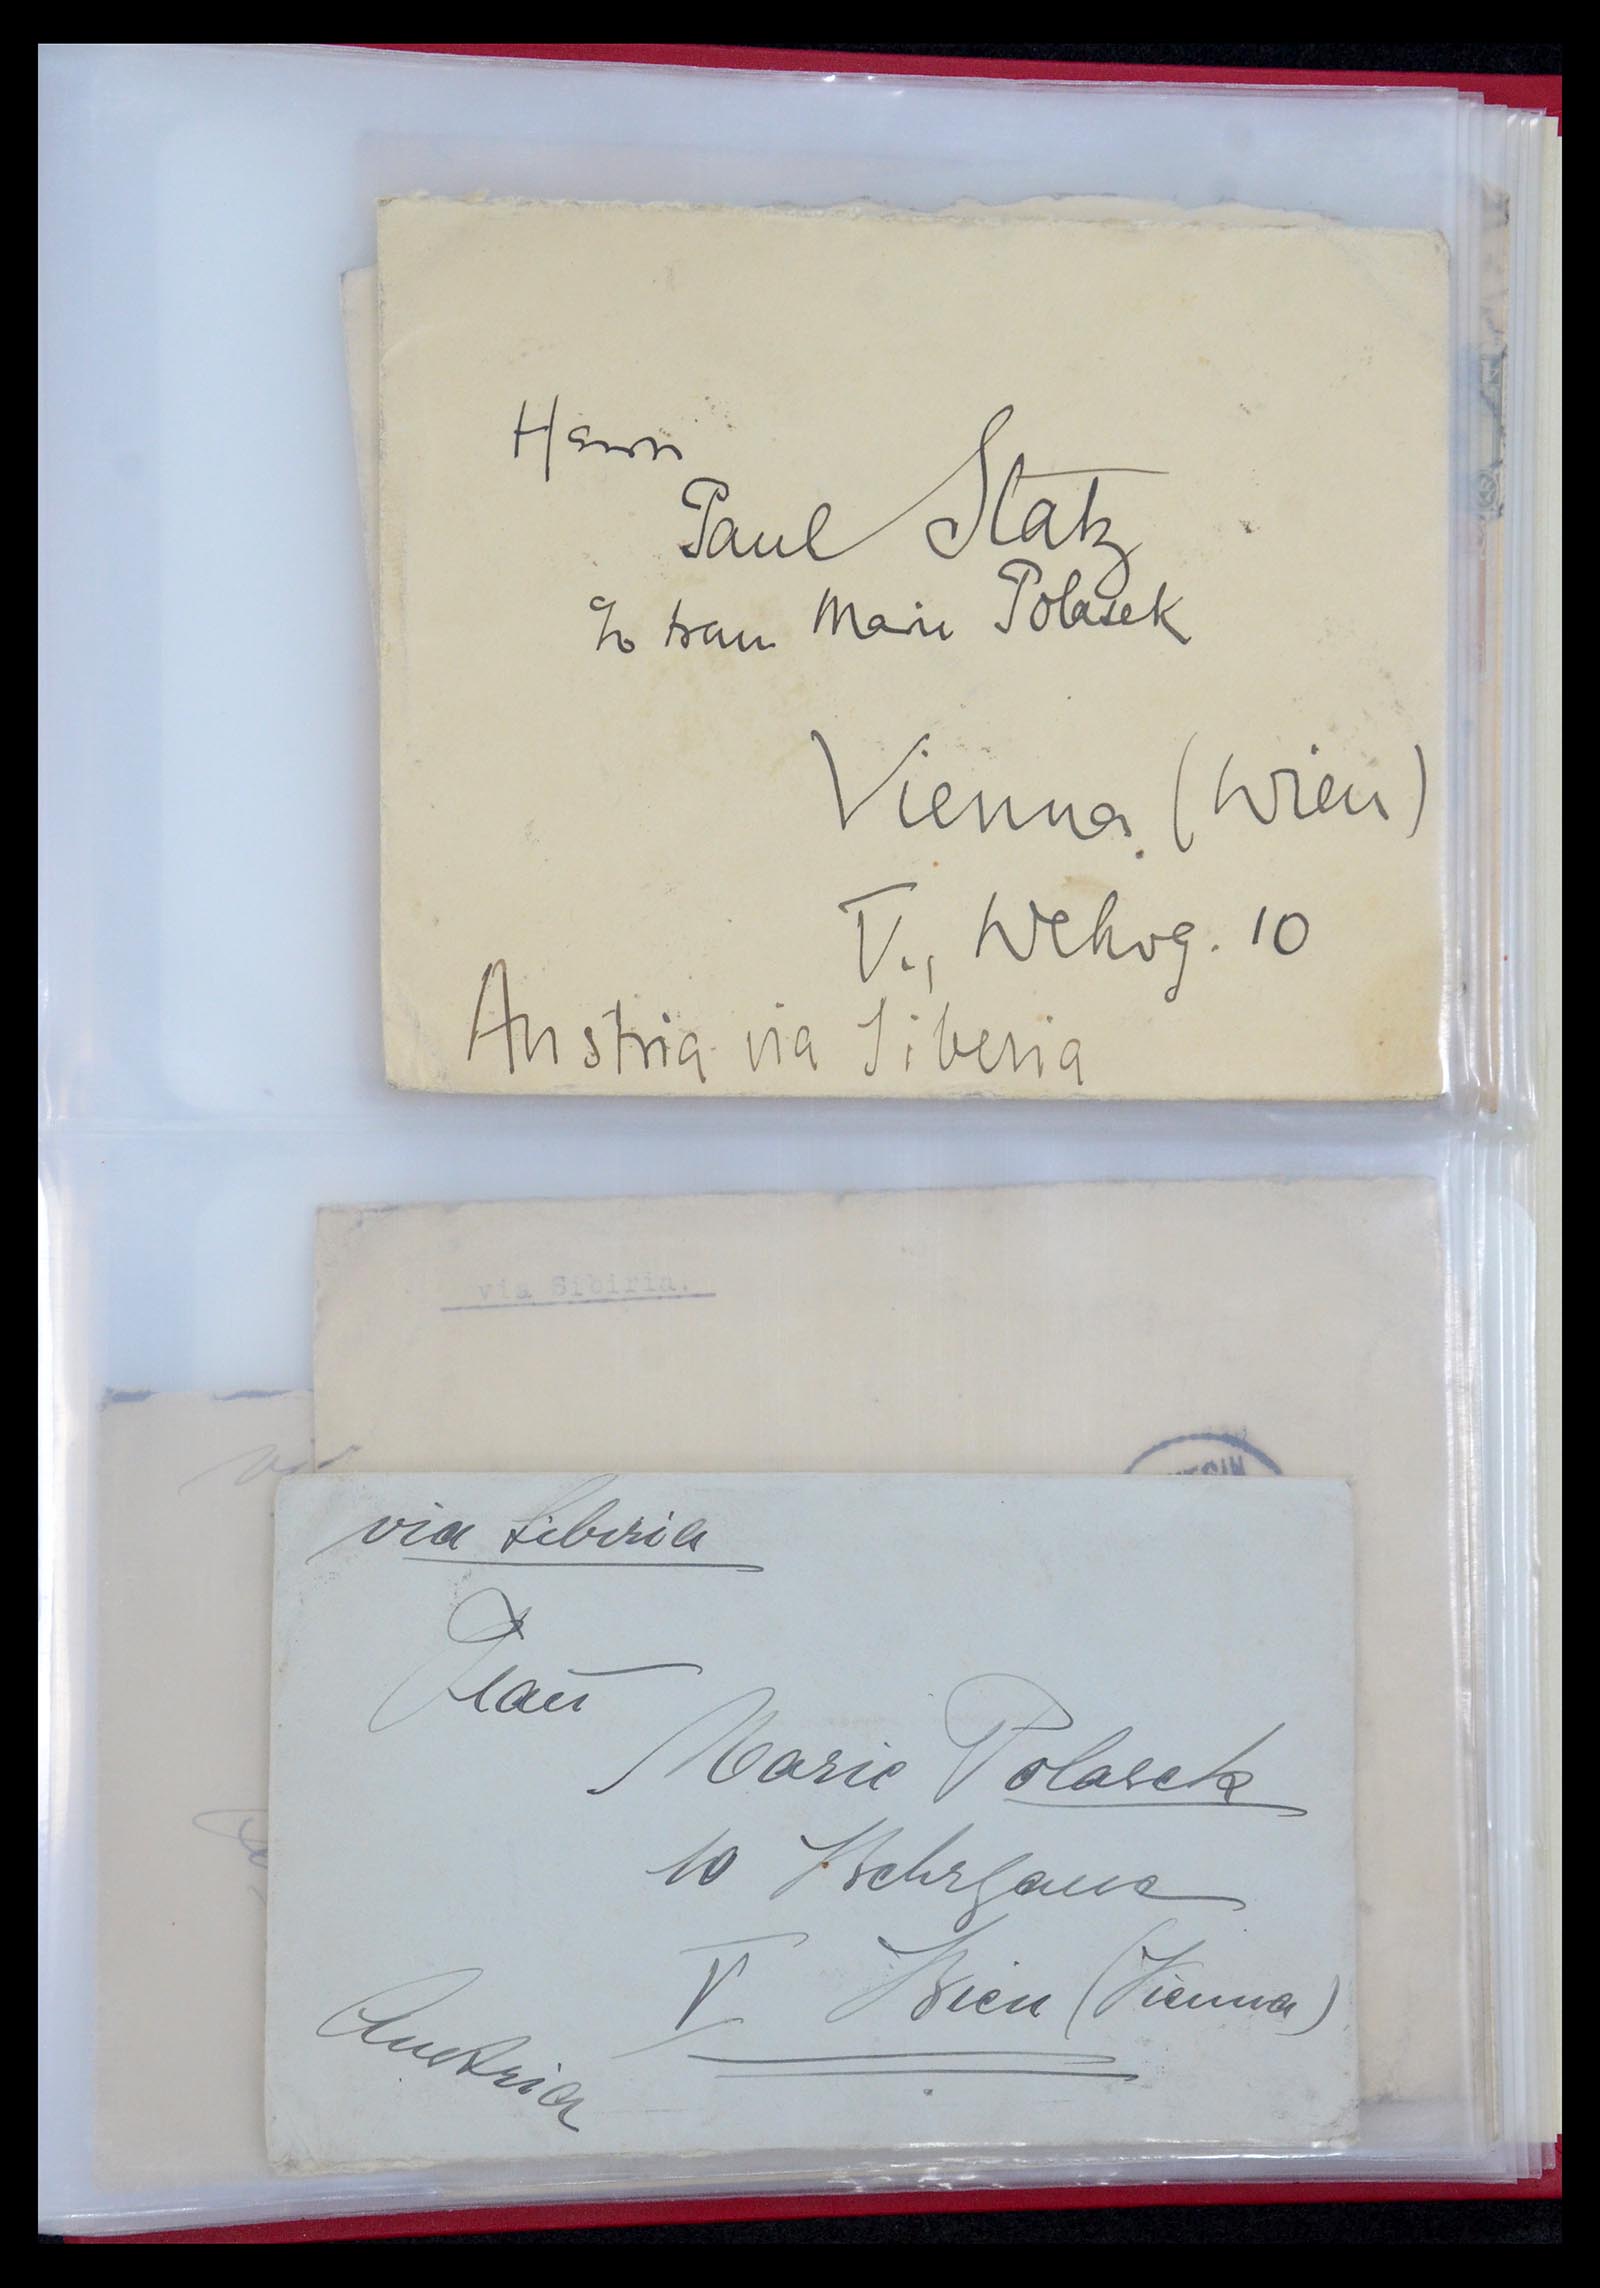 Herrn
Paul Statz
c/o Frau Marie Polasek
Vienna (Wien)
V., Wehrg. 10
Austria via Siberia
via Sibiria.
via Siberia
Frau
Marie Polasek
10 Wehrgasse
V Wien (Vienna)
Austria